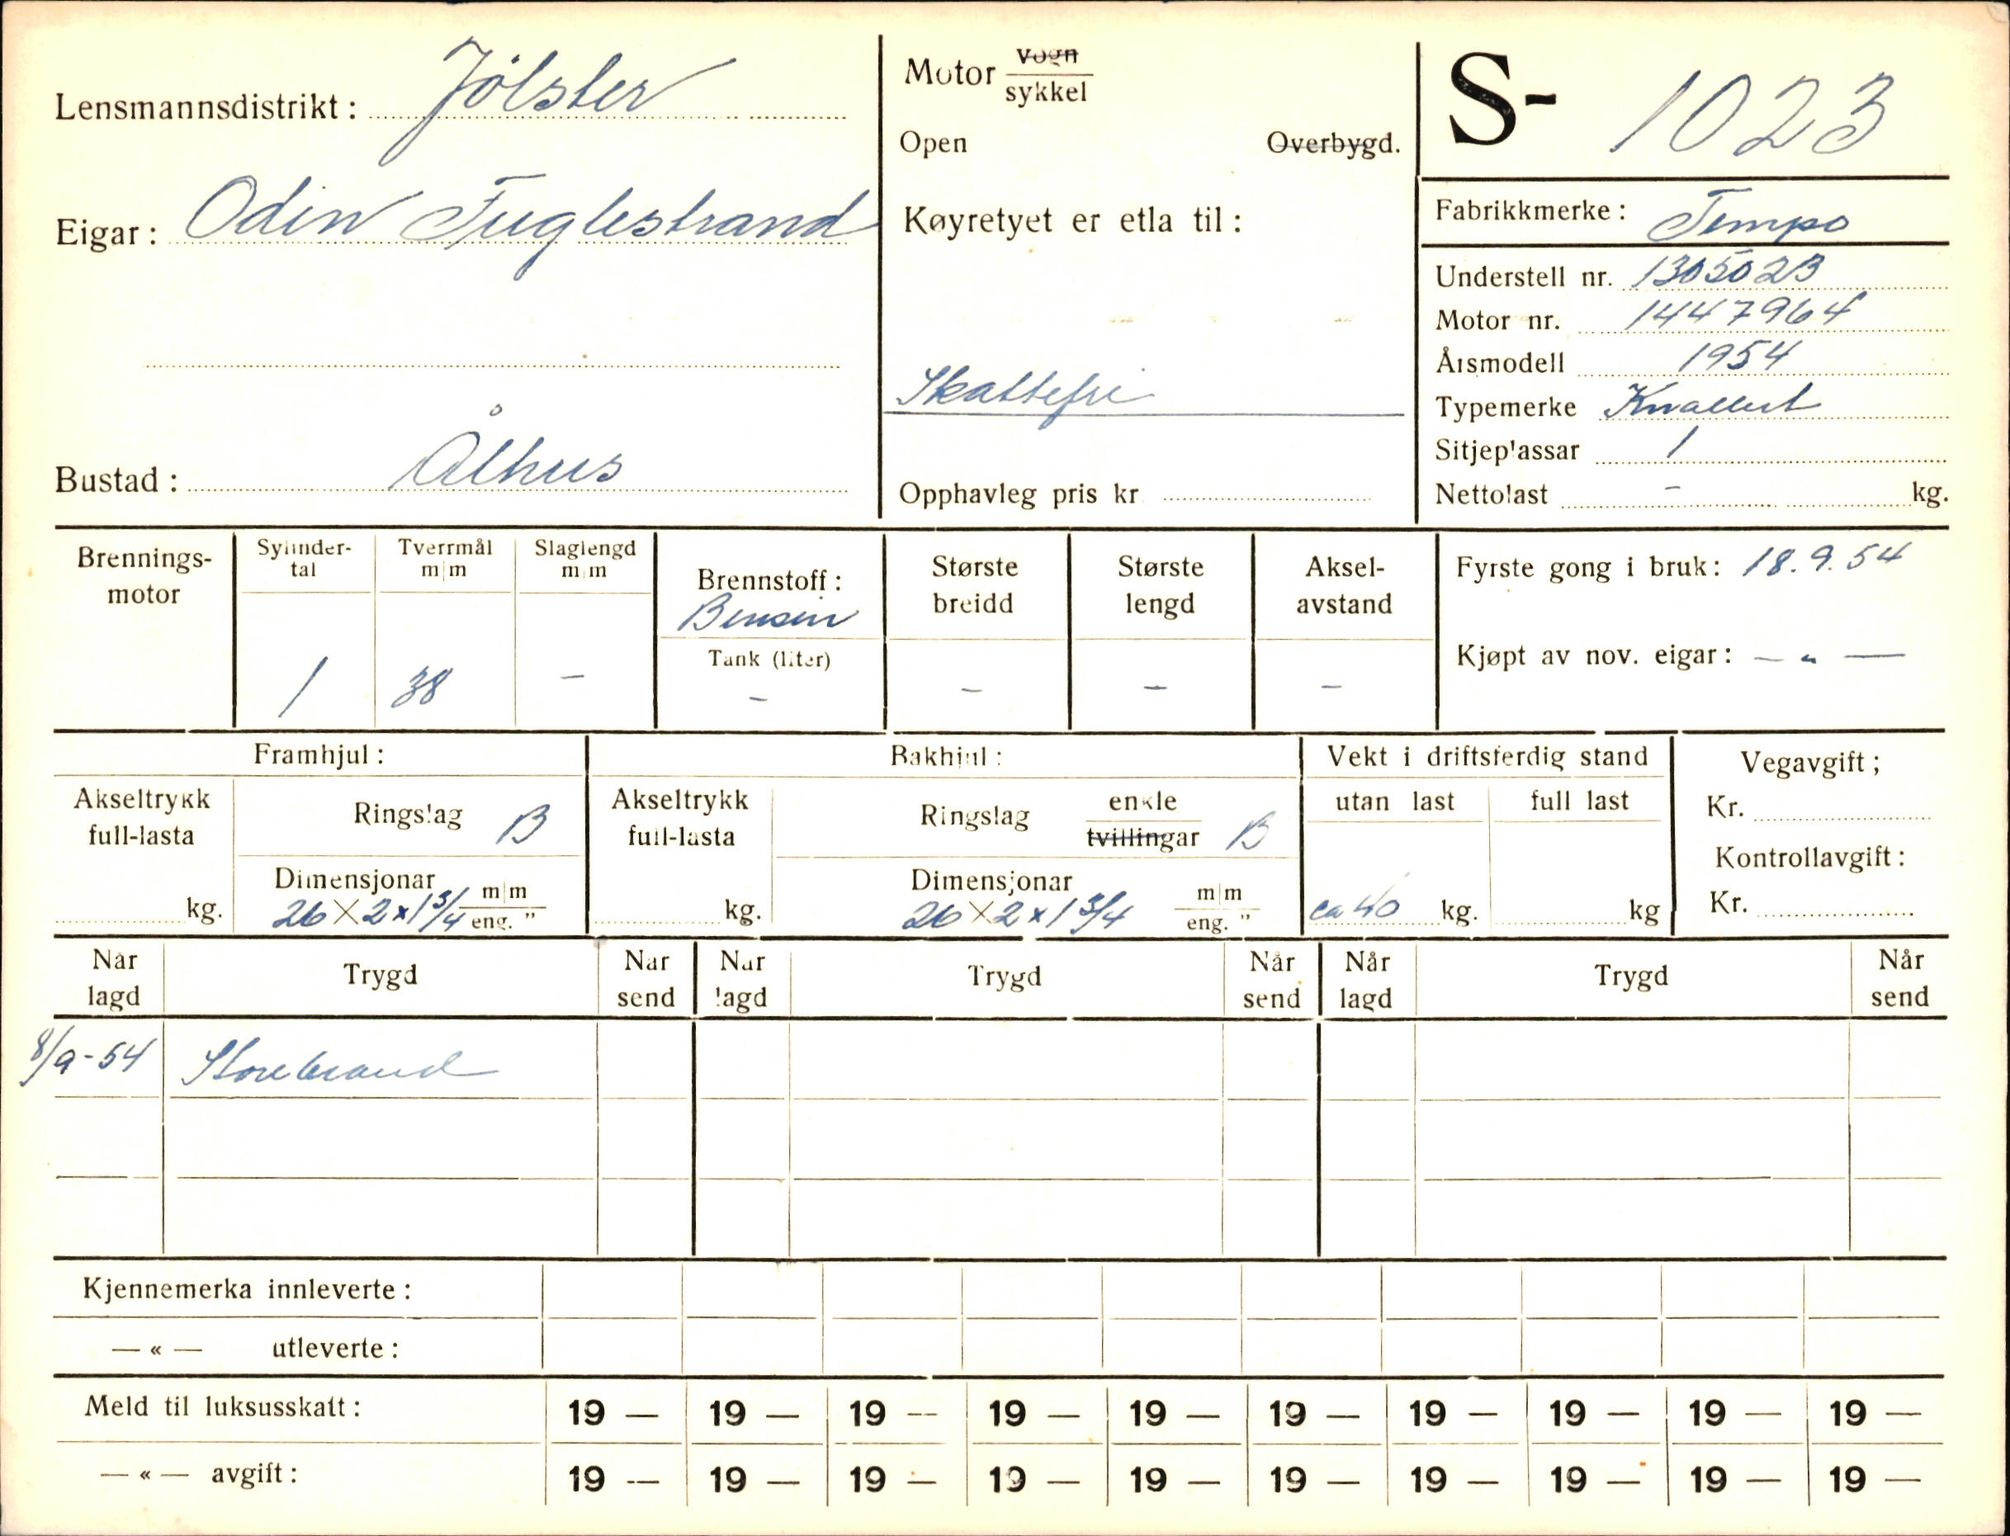 Lensmannsdistrikt: Jölster
Eigar: Odin Fuglestrand
Bustad: Ålhus
Motor vogn
sykkel
Open Overbygd.
Køyretyet er etla til:
Skattefri
Opphavleg pris kr
S- 1023
Fabrikkmerke: Tempo
Understell nr. 1305023
Motor nr. 1447964
Årsmodell 1954
Typemerke Knallert
Sitjeplassar 1
Nettolast - kg.
Brennings-
motor
Sylinder-
tal
1
Tverrmål
m|m
38
Slaglengd
m|m
-
Brennstoff:
Bensin
Tank (liter)
-
Største
breidd
-
Største
lengd
-
Aksel-
avstand
-
Fyrste gong i bruk: 18.9.54
Kjøpt av nov. eigar: — " —
Framhjul:
Akseltrykk
full-lasta
kg.
Ringslag B
Dimensjonar
26 × 2 × 1 3/4 m|m
eng. "
Bakhjul:
Akseltrykk
full-lasta
kg.
Ringslag enkle
tvillingar B
Dimensjonar
26 × 2 × 1 3/4 m|m
eng. "
Vekt i driftsferdig stand
utan last full last
ca 40 kg. kg
Vegavgift;
Kr.
Kontrollavgift:
Kr.
Når
lagd Trygd Når
send Når
lagd Trygd Når
send Når
lagd Trygd Når
send
8/9-54 Storebrand
Kjennemerka innleverte:
— « — utleverte:
Meld til luksusskatt: 19 — 19 — 19 — 19 — 19 — 19 — 19 — 19 — 19 — 19 —
— « — avgift: 19 — 19 — 19 — 19 — 19 — 19 — 19 — 19 — 19 — 19 —